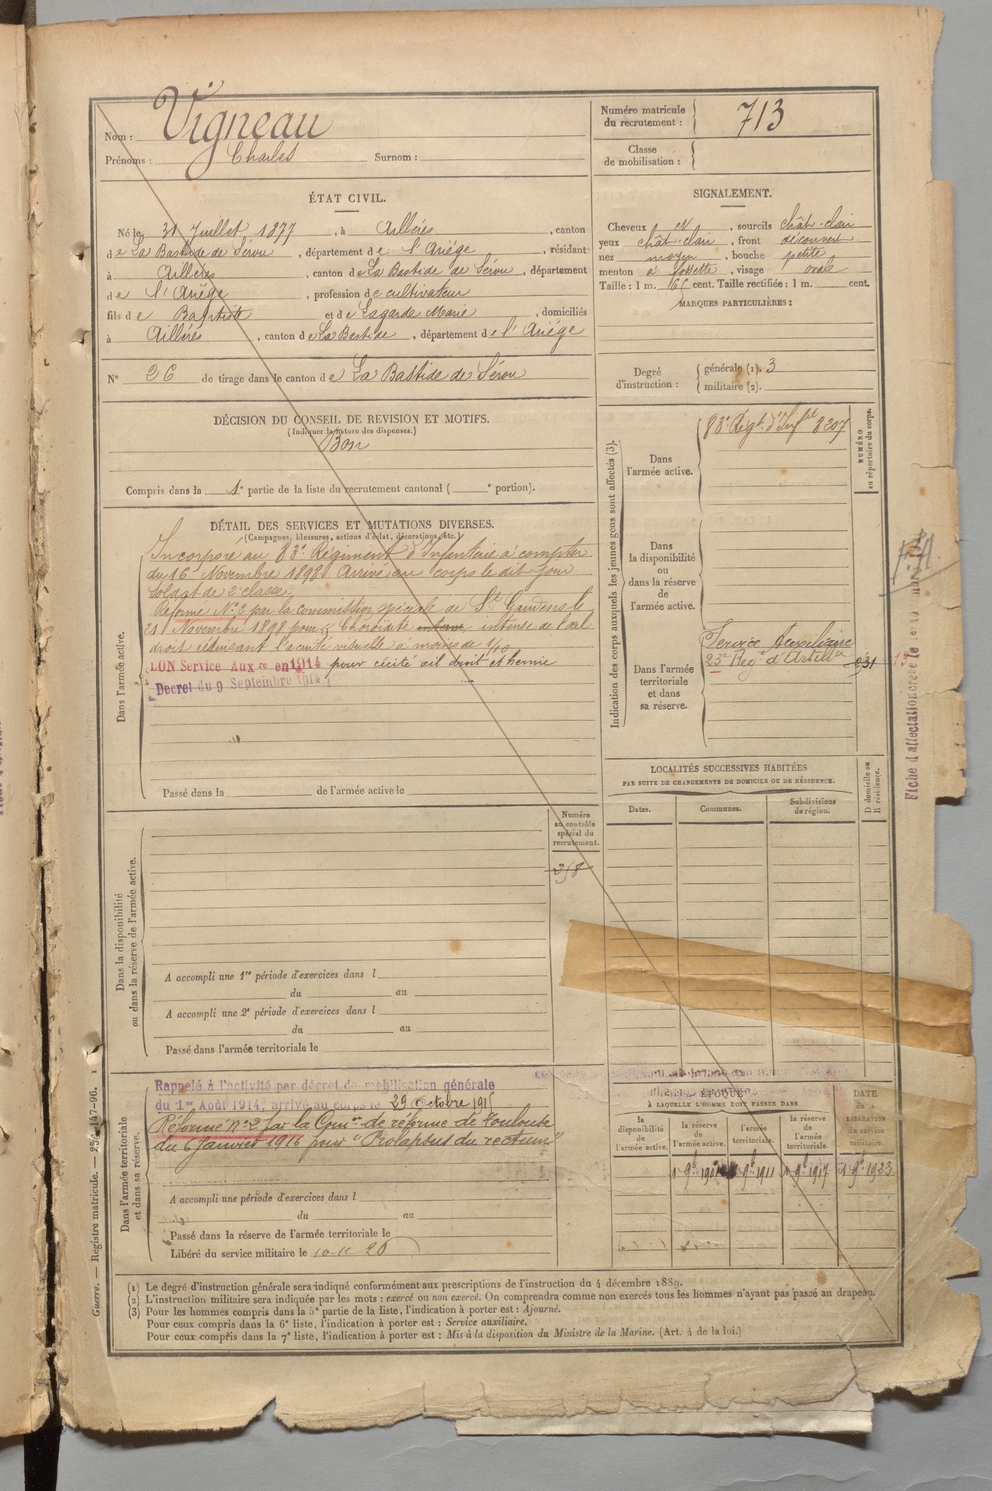 Nom : Vigneau
Prénoms : Charles Surnom :
Numéro matricule du recrutement : 713
Classe de mobilisation :
ÉTAT CIVIL.
Né le 31 Juillet 1877, à Aillères, canton
de La Bastide de Sérou, département de l'Ariège, résidant
à Aillères, canton de La Bastide de Sérou, département
de l'Ariège, profession de cultivateur
fils de Baptiste et de Lagarde Marie, domiciliés
à Aillères, canton de La Bastide, département de l'Ariège
N° 26 de tirage dans le canton de La Bastide de Sérou
SIGNALEMENT.
Cheveux N, sourcils chât. clair
yeux chât. clair, front découvert
nez moyen, bouche petite
menton à fossette, visage ovale
Taille : 1 m. 65 cent. Taille rectifiée : 1 m. cent.
MARQUES PARTICULIÈRES :
Degré d'instruction : générale (1). 3
militaire (2).
DÉCISION DU CONSEIL DE REVISION ET MOTIFS.
(Indiquer la nature des dispenses.)
Bon
Compris dans la 1e partie de la liste du recrutement cantonal ( e portion).
DÉTAIL DES SERVICES ET MUTATIONS DIVERSES.
(Campagnes, blessures, actions d'éclat, décorations, etc.)
Dans l'armée active.
Incorporé au 83e Régiment d'Infanterie à compter
du 16 Novembre 1898 Arrivé au corps le dit jour
soldat de 2e classe.
Réformé N° 2 par la commission spéciale de St Gaudens le
21 Novembre 1898 pour Choroïdite intense de l'œil
droit réduisant l'acuité visuelle à moins de 1/10
BON Service Auxre en 1914 pour cécité œil droit et hernie
Décret du 9 Septembre 1914
Passé dans la de l'armée active le
Indication des corps auxquels les jeunes gens sont affectés (3).
NUMÉRO au répertoire du corps.
Dans l'armée active.
83e Régt d'Infie 8207
Dans la disponibilité ou dans la réserve de l'armée active.
Dans l'armée territoriale et dans sa réserve.
Service Auxiliaire
23e Régt d'Artillie 031
LOCALITÉS SUCCESSIVES HABITÉES
PAR SUITE DE CHANGEMENTS DE DOMICILE OU DE RÉSIDENCE.
Dates. Communes. Subdivisions de région. D domicile ou R résidence.
Fiche d'affectation
Dans la disponibilité ou dans la réserve de l'armée active.
Numéro au contrôle spécial du recrutement.
A accompli une 1re période d'exercices dans l
du au
A accompli une 2e période d'exercices dans l
du au
Passé dans l'armée territoriale le
Dans l'armée territoriale et dans sa réserve.
Rappelé à l'activité par décret de mobilisation générale
du 1er Août 1914, arrivé au corps le 29 Octobre 1915
Réformé N° 2 par la Comon de réforme de Toulouse
du 6 Janvier 1916 pour "Prolapsus du rectum"
A accompli une période d'exercices dans l
du au
Passé dans la réserve de l'armée territoriale le
Libéré du service militaire le 10-11-26
ÉPOQUE
À LAQUELLE L'HOMME DOIT PASSER DANS
la disponibilité de l'armée active. la réserve de l'armée active. l'armée territoriale. la réserve de l'armée territoriale.
DATE de la LIBÉRATION du service militaire.
1 9bre 1911 1 9bre 1917 1 9bre 1923
(1) Le degré d'instruction générale sera indiqué conformément aux prescriptions de l'instruction du 4 décembre 1889.
(2) L'instruction militaire sera indiquée par les mots : exercé ou non exercé. On comprendra comme non exercés tous les hommes n'ayant pas passé au drapeau.
(3) Pour les hommes compris dans la 5e partie de la liste, l'indication à porter est : Ajourné.
Pour ceux compris dans la 6e liste, l'indication à porter est : Service auxiliaire.
Pour ceux compris dans la 7e liste, l'indication à porter est : Mis à la disposition du Ministre de la Marine. (Art. 4 de la loi.)
Guerre. — Registre matricule. — 254-147-96.